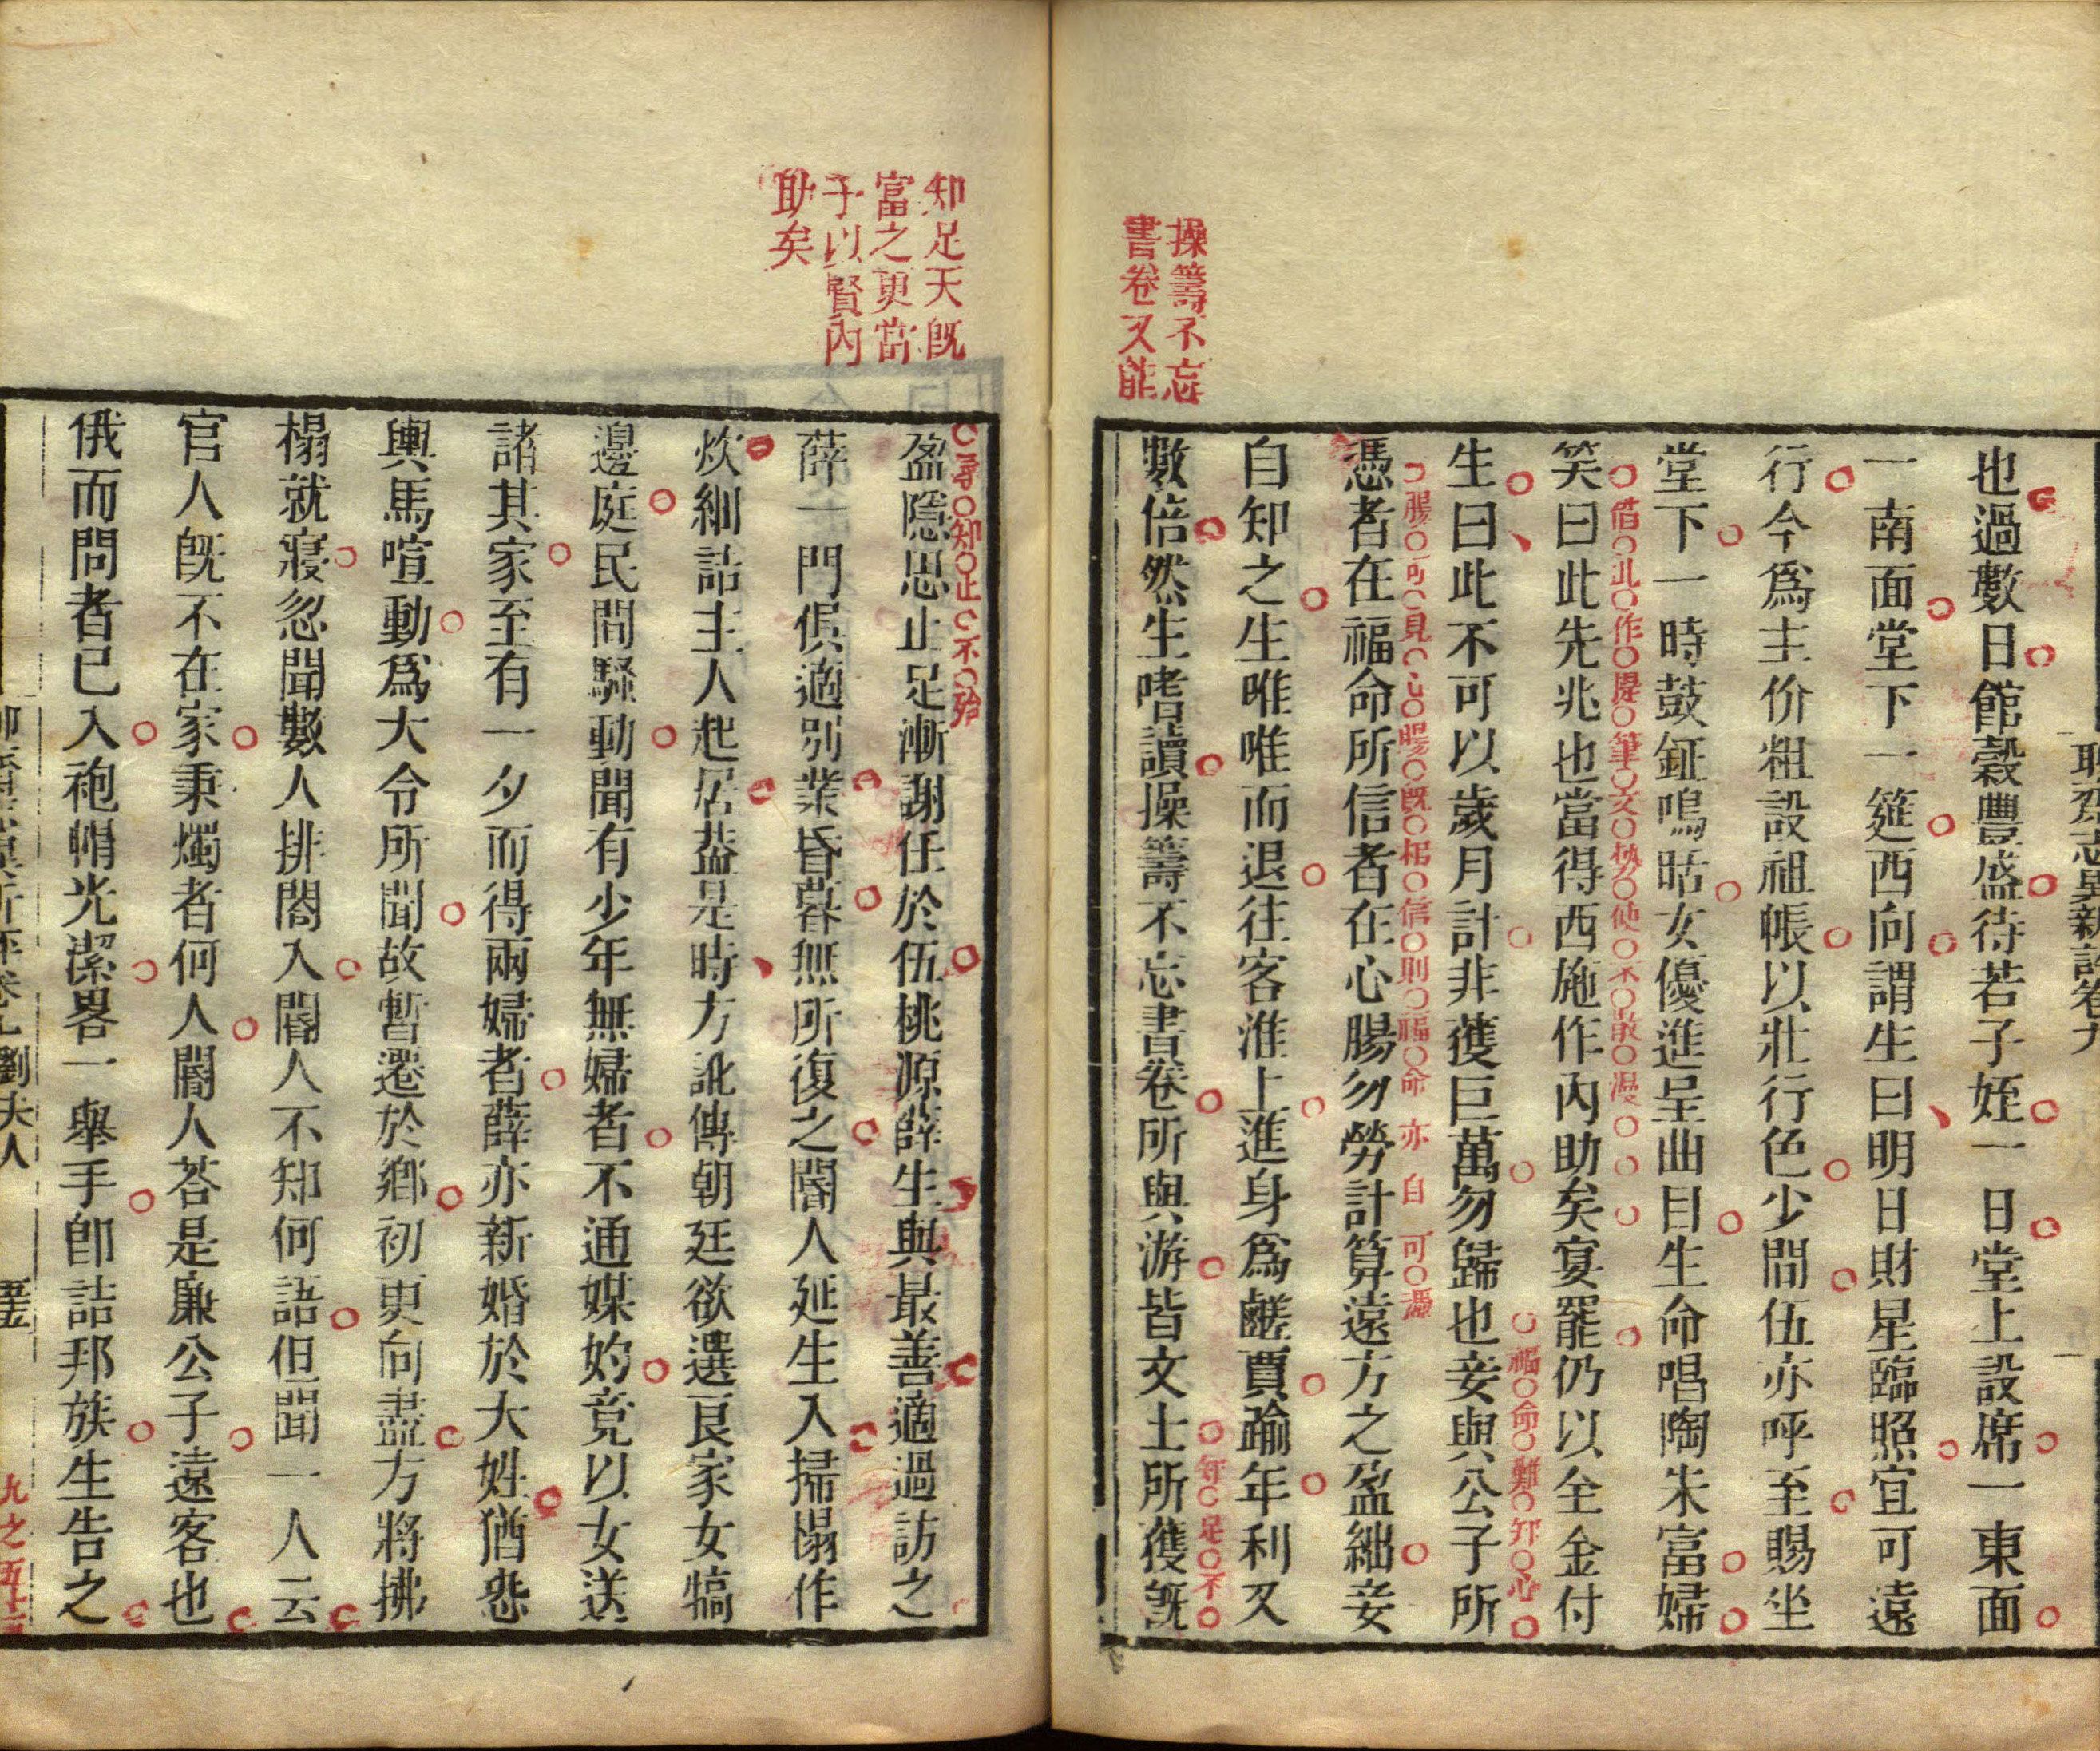 聊齋志異新評卷九
也過數日館穀豐盛待若子姪一日堂上設席一東面
一南面堂下一筵西向謂生曰明日財星臨照宜可遠
行今爲主价粗設祖帳以壯行色少間伍亦呼至賜坐
堂下一時鼓鉦鳴聒女優進呈曲目生命唱陶朱富婦
借此作提筆文勢便不散漫
笑曰此先兆也當得西施作內助矣宴罷仍以全金付
福命難知心
生曰此不可以歲月計非獲巨萬勿歸也妾與公子所
腸可見心腸旣相信則福命亦自可憑
憑者在福命所信者在心腸勿勞計算遠方之盈絀妾
自知之生唯唯而退往客淮上進身爲鹺賈踰年利又
操籌不忘
書卷又能
知足不
數倍然生嗜讀操籌不忘書卷所與游皆文士所獲旣
知足天旣
富之更當
予以賢內
助矣
辱知止不殆
盈隱思止足漸謝任於伍桃源薛生與最善適過訪之
薛一門俱適別業昏暮無所復之閽人延生入掃榻作
炊細詰主人起居葢是時方訛傳朝廷欲選良家女犒
邊庭民間騷動聞有少年無婦者不通媒妁竟以女送
諸其家至有一夕而得兩婦者薛亦新婚於大姓猶恐
輿馬喧動爲大令所聞故暫遷於鄉初更向盡方將拂
榻就寢忽聞數人排闔入閽人不知何語但聞一人云
官人旣不在家秉燭者何人閽人荅是廉公子遠客也
俄而問者已入袍帽光潔畧一舉手卽詰邦族生告之
劉夫人